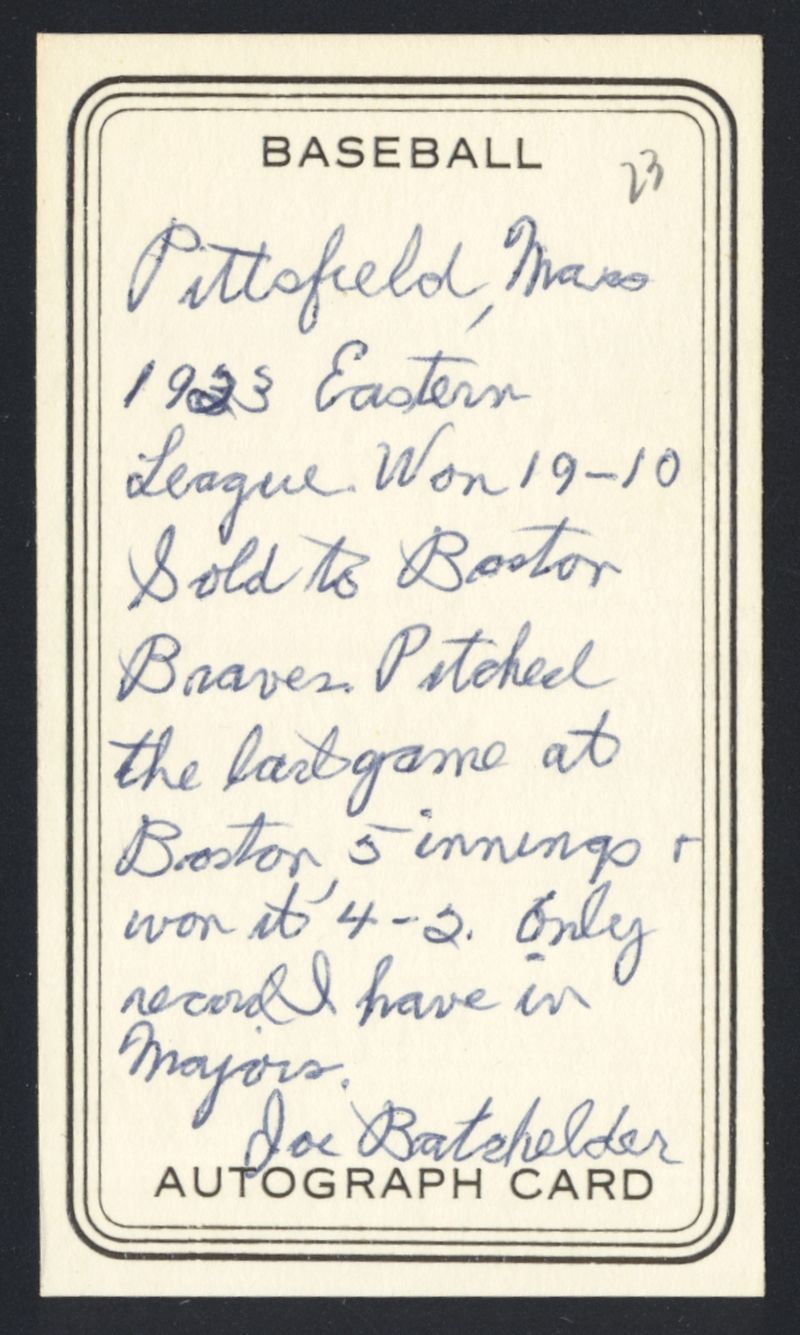 BASEBALL
23
Pittsfield, Mass
1923 Eastern
League. Won 19-10
Sold to Boston
Braves. Pitched
the last game at
Boston, 5 innings +
won it 4-2. Only
record I have in
Majors.
Joe Batchelder
AUTOGRAPH CARD